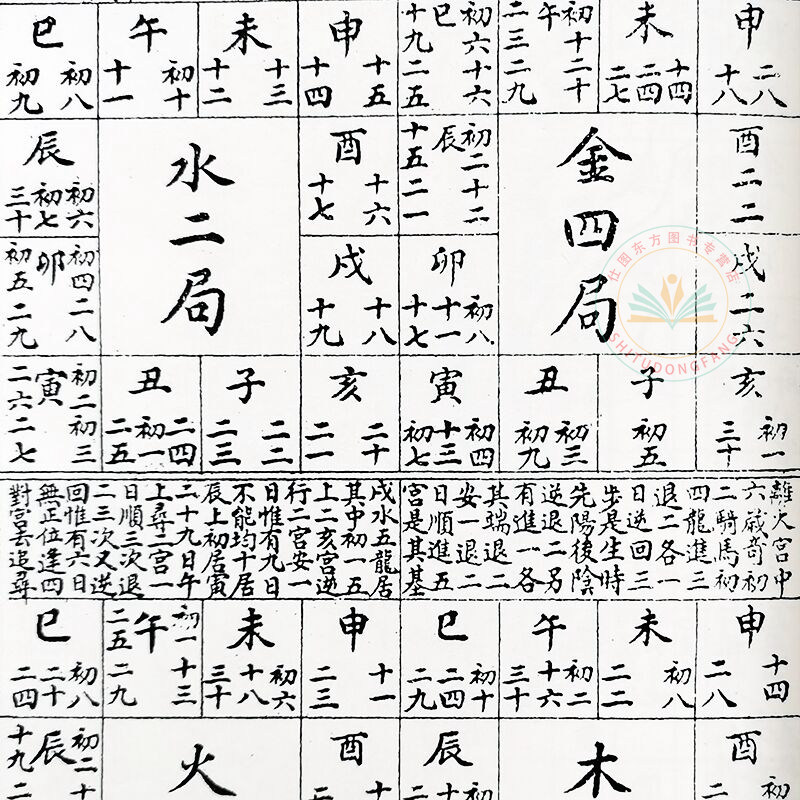 申
二八
十八
未
十四
二四
二七
初十二十
午
二三二九
初六十六
巳
十九二五
申
十五
十四
未
十三
十二
午
初十
十一
巳
初八
初九
酉
二二
金四局
初二十二
辰
十五二一
酉
十六
十七
水二局
辰
初六
初七
三十
戌
二六
卯
初八
十一
十七
戌
十八
十九
初四二八
卯
初五二九
亥
初一
三十
子
初五
丑
初三
初九
寅
初四
十三
初七
亥
二十
二一
子
二二
二三
丑
二四
初一
二五
初二初三
寅
二六二七
離火宮中
六歲奇初
二騎馬初
四龍進三
退二各一
日逆回三
步是生時
先陽後陰
逆退二另
有進一各
其端退二
安一退二
日順進五
宮是其基
戌水五龍居
其中初一五
上二亥宮逆
行二宮安一
日惟有九日
不能均十居
辰上初居寅
二十九日午
上尋二宮一
日順三次退
二三次又逆
回惟有六日
無正位逢四
對宮去追尋
申
十四
二八
未
初八
二二
午
初二
十六
三十
巳
初十
二四
二九
申
十一
二三
未
初六
十八
三十
初一十三
午
二五二九
巳
初八
二十
二四
酉
初
二
木
辰
初
十
二
酉
十
二
火
初二十
辰
十九二
仕图东方图书专营店
SHITUDONGFANG